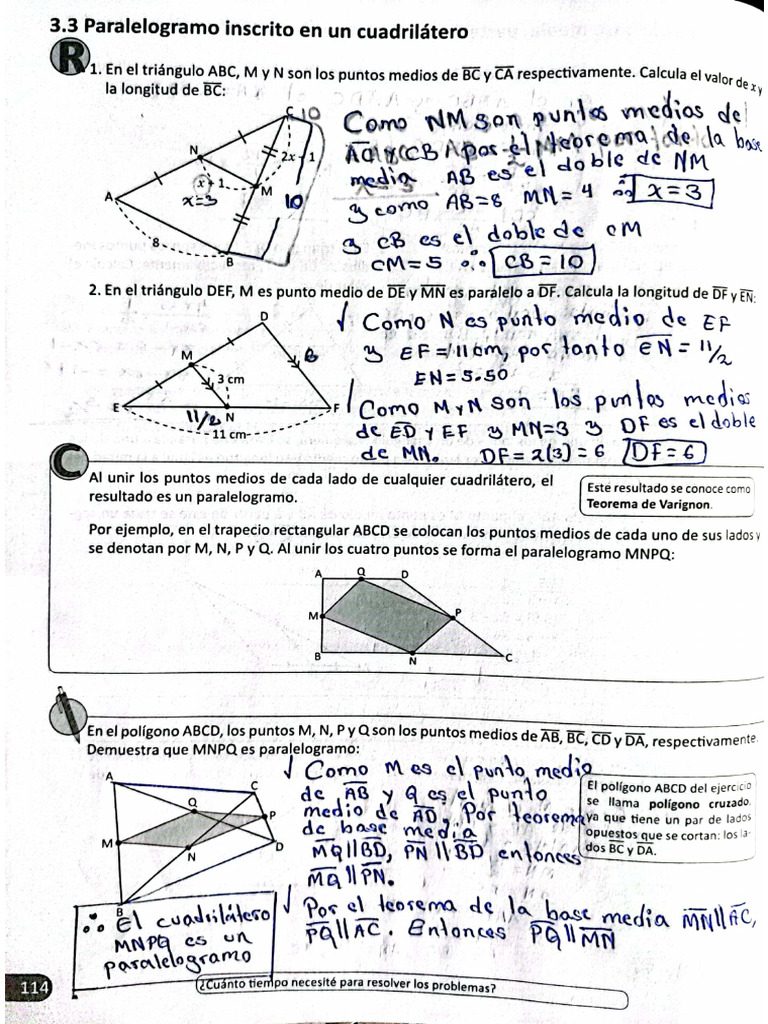 3.3 Paralelogramo inscrito en un cuadrilátero
R
1. En el triángulo ABC, M y N son los puntos medios de BC y CA respectivamente. Calcula el valor de x y
la longitud de BC:
C 10
N
2x - 1
x + 1
M
x=3
10
A
8
B
Como NM son puntos medios de
AC y CB por el teorema de la base
media AB es el doble de NM
y como AB=8 MN=4 ∴ x=3
y CB es el doble de CM
CM=5 ∴ CB=10
2. En el triángulo DEF, M es punto medio de DE y MN es paralelo a DF. Calcula la longitud de DF y EN:
D
M
6
3 cm
E
11/2
N
F
11 cm
√ Como N es punto medio de EF
y EF=11cm, por tanto EN=11/2
EN=5.50
√ Como M y N son los puntos medios
de ED y EF y MN=3 y DF es el doble
de MN. DF=2(3)=6 DF=6
C
Al unir los puntos medios de cada lado de cualquier cuadrilátero, el
resultado es un paralelogramo.
Este resultado se conoce como
Teorema de Varignon.
Por ejemplo, en el trapecio rectangular ABCD se colocan los puntos medios de cada uno de sus lados y
se denotan por M, N, P y Q. Al unir los cuatro puntos se forma el paralelogramo MNPQ:
A Q D
M P
B N C
En el polígono ABCD, los puntos M, N, P y Q son los puntos medios de AB, BC, CD y DA, respectivamente.
Demuestra que MNPQ es paralelogramo:
A
C
Q
P
M
D
N
B
√ Como M es el punto medio
de AB y Q es el punto
medio de AD. Por teorema
de base media
MQ||BD, PN||BD, entonces
MQ||PN.
El polígono ABCD del ejercicio
se llama polígono cruzado,
ya que tiene un par de lados
opuestos que se cortan: los la-
dos BC y DA.
√ Por el teorema de la base media MN||AC,
PQ||AC. Entonces PQ||MN
∴ El cuadrilátero
MNPQ es un
paralelogramo
114
¿Cuánto tiempo necesité para resolver los problemas?